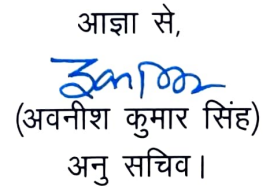 आज्ञा से,
(अवनीश कुमार सिंह)
अनु सचिव।